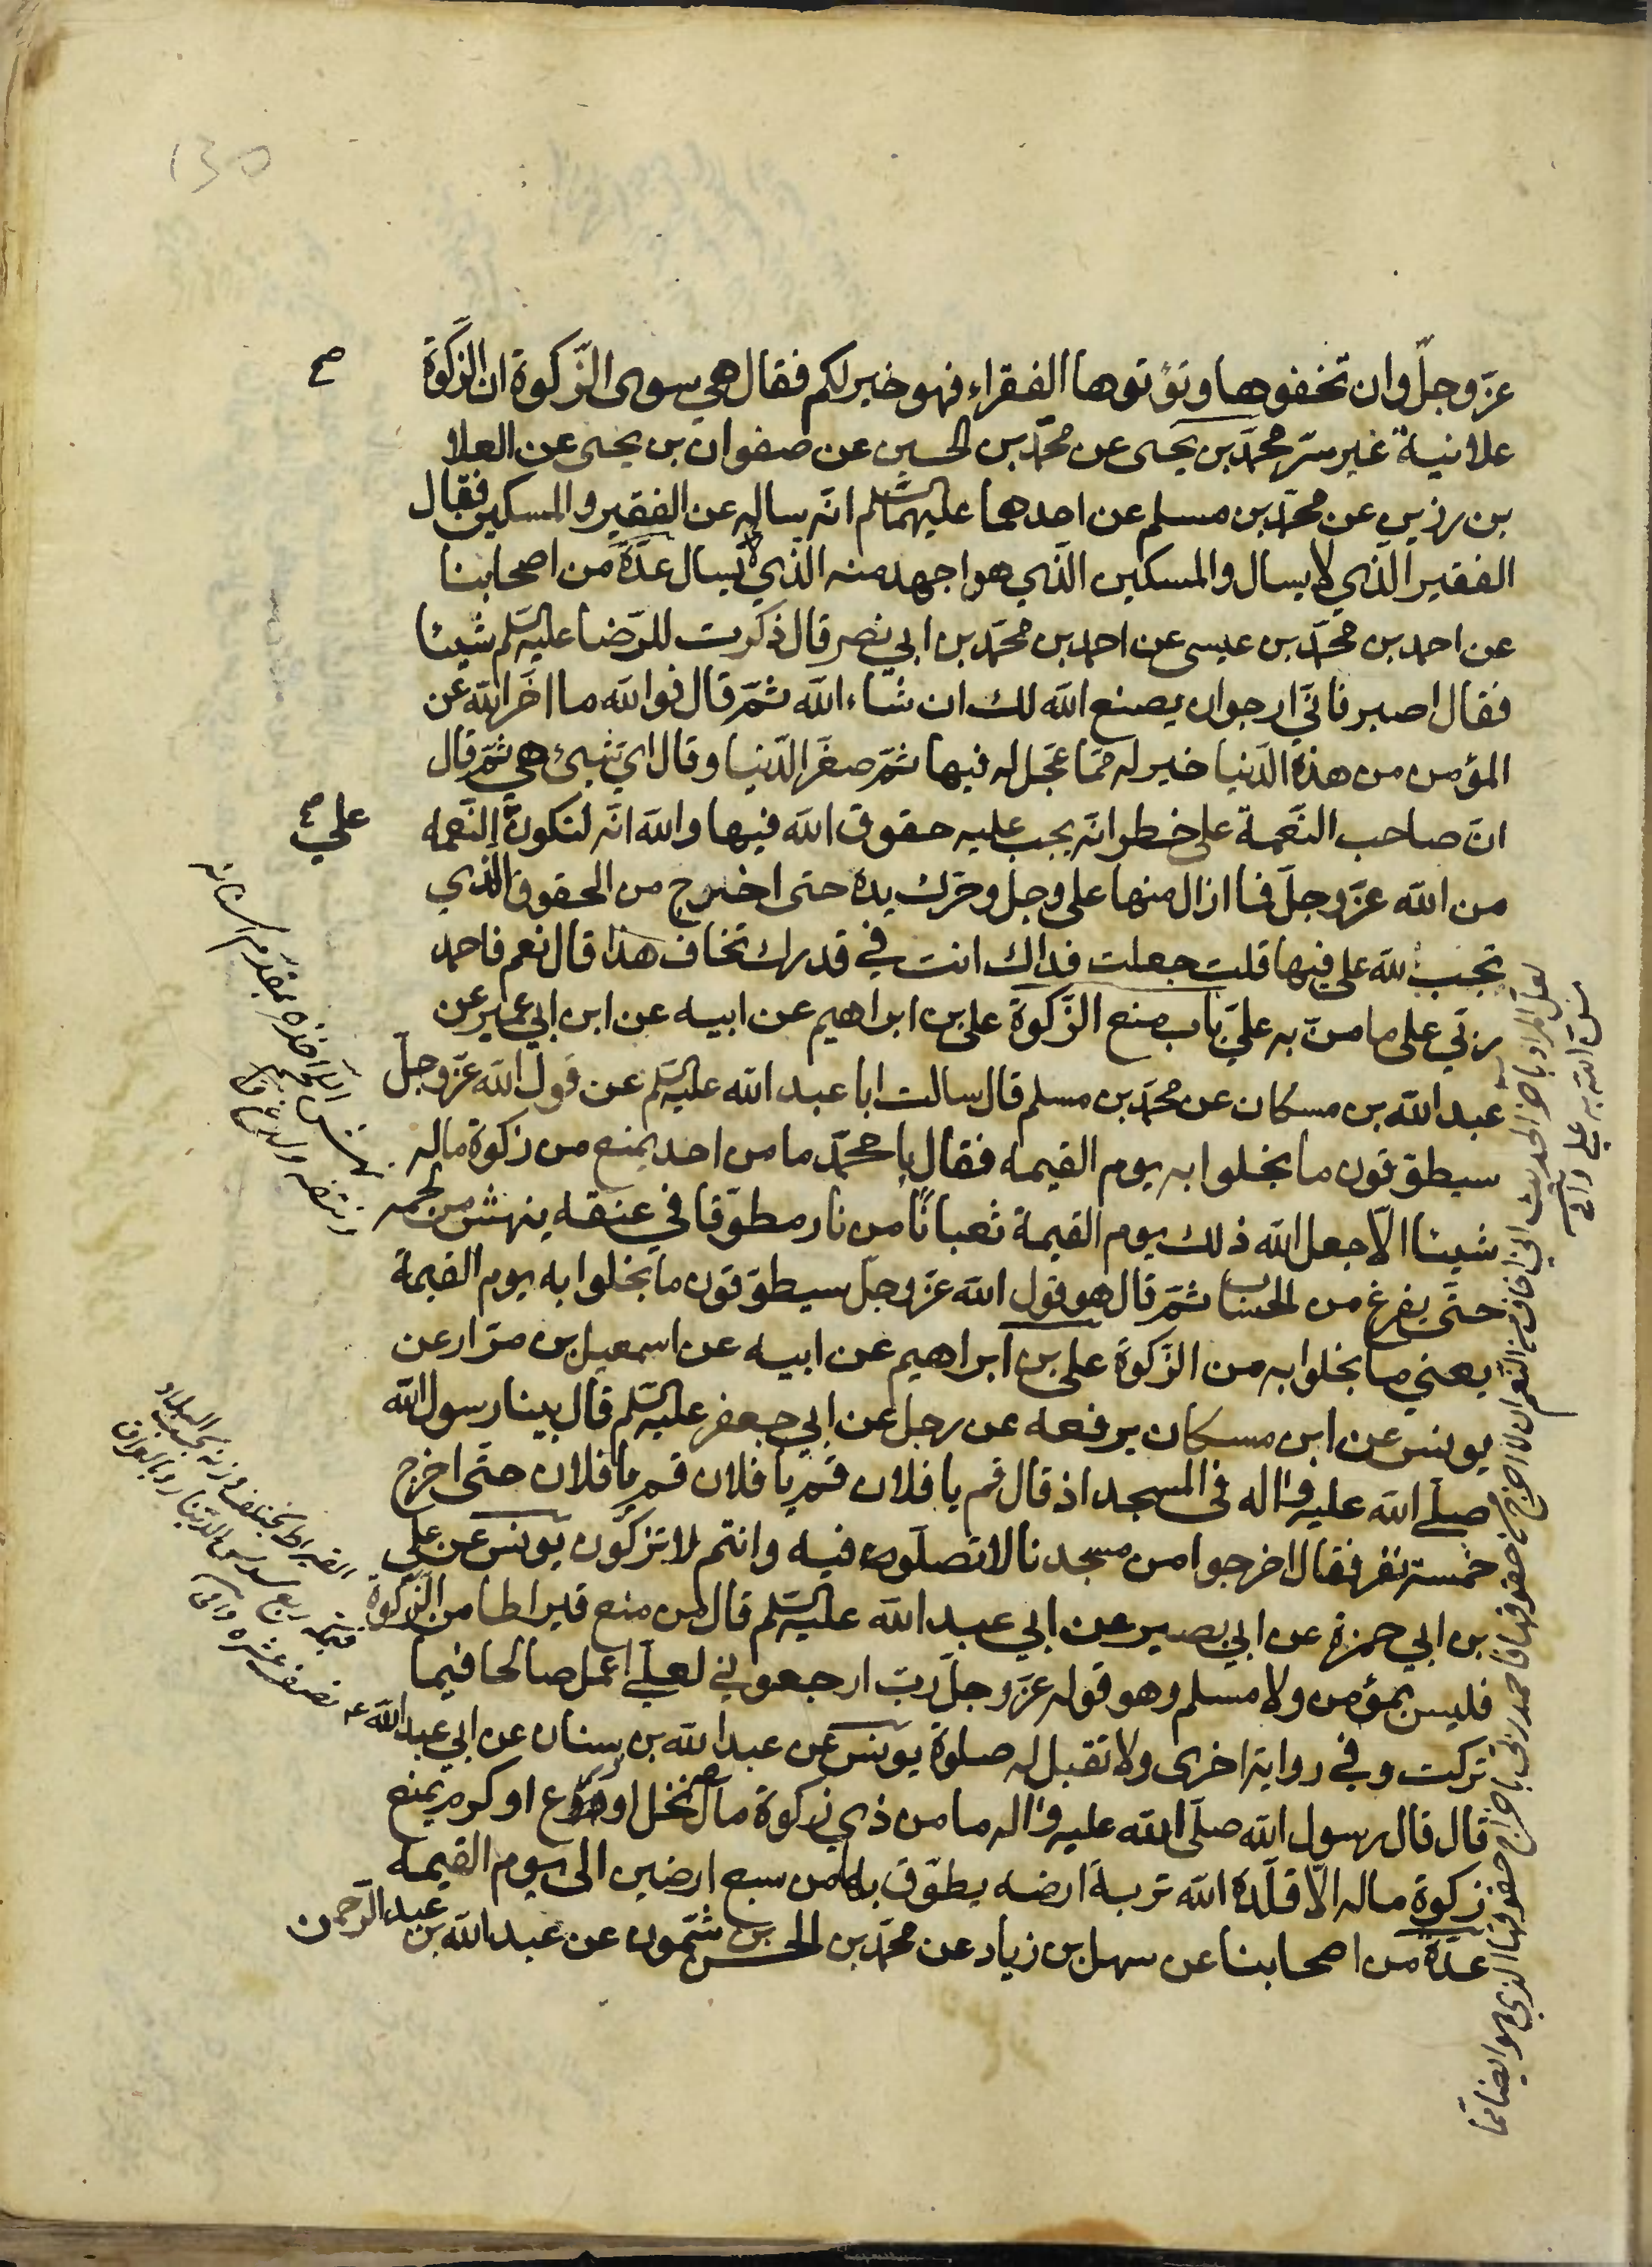 عزّ وجلّ وان تخفوها وتؤتوها الفقراء فهو خير لكم فقال هي سوى الزّكوة ان الزّكوة
علانية غير سرّ محمّد بن يحيى عن محمّد بن الحسين عن صفوان بن يحيى عن العلا
بن رزين عن محمّد بن مسلم عن احدهما عليهما السّلم انّه ساله عن الفقير والمسكين فقال
الفقير الّذي لا يسال والمسكين الّذي هو اجهد منه الّذي يسال عدّة من اصحابنا
عن احمد بن محمّد بن عيسى عن احمد بن محمّد بن ابي نصر قال ذكرت للرّضا عليه السّلم شيئا
فقال اصبر فانّي ارجوان يصنع الله لك ان شاء الله ثمّ قال فوالله ما اخّر الله عن
المؤمن من هذه الدّنيا خير له ممّا عجّل له فيها ثمّ صغّر الدّنيا وقال ايّ شيئ هي ثمّ قال
انّ صاحب النّعمة على خطر انّه يجب عليه حقوق الله فيها والله انّه لتكون النّعمه
من الله عزّ وجلّ فما ازال منها على وجل وحرّك يده حتى اخرج من الحقوق الّذي
تجب لله علي فيها قلت جعلت فداك انت في قدرك تخاف هذا قال نعم فاحمد
ربّي على ما منّ به عليّ باب منع الزّكوة علي بن ابراهيم عن ابيه عن ابن ابي عمير عن
عبد الله بن مسكان عن محمّد بن مسلم قال سالت ابا عبد الله عليه السّلم عن قول الله عزّ وجلّ
سيطوّقون ما بخلوا به يوم القيمه فقال يا محمّد ما من احد يمنع من زكوة ماله
شيئا الّا جعل الله ذلك يوم القيمة ثعبانًا من نار مطوّقا في عنقه ينهش من لحمه
حتّى يفرغ من الحساب ثمّ قال هو قول الله عزّ وجلّ سيطوّقون ما بخلوا به يوم القيمة
يعني ما بخلوا به من الزّكوة علي بن ابراهيم عن ابيه عن اسمعيل بن مرّار عن
يونس عن ابن مسكان يرفعه عن رجل عن ابي جعفر عليه السّلم قال بينا رسول الله
صلّى الله عليه واله في المسجد اذ قال قم يا فلان قم يا فلان قم يا فلان حتّى اخرج
خمسة نفر فقال اخرجوا من مسجدنا لا تصلّون فيه وانتم لا تزكّون يونس عن علي
بن ابي حمزة عن ابي بصير عن ابي عبد الله عليه السّلم قال من منع قيراطا من الزّكوة
فليس بمؤمن ولا مسلم وهو قوله عزّ وجلّ ربّ ارجعوني لعلّي اعمل صالحا فيما
تركت وفي رواية اخرى ولا تقبل له صلوة يونس عن عبد الله بن سنان عن ابي عبد الله ع
قال قال رسول الله صلّى الله عليه واله ما من ذي زكوة مال نخل او زرع او كرم يمنع
زكوة ماله الّا قلّده الله تربة ارضه يطوّق بها من سبع ارضين الى يوم القيمه
عدّة من اصحابنا عن سهل بن زياد عن محمّد بن الحسن بن شمّون عن عبد الله بن عبد الرّحمن
علي
لعلّ المراد باخر الحديث اني اخاف من النّعم ان لا اخرج من حقوقها فاحمد ربّي باخراج حقوقها الذي هو ايضا ممّا
منّ الله به علي وافي
القيراط يختلف وزنه بحسب البلاد
ربع سدس الدّينار وبالعراق
نصف عشره وافي